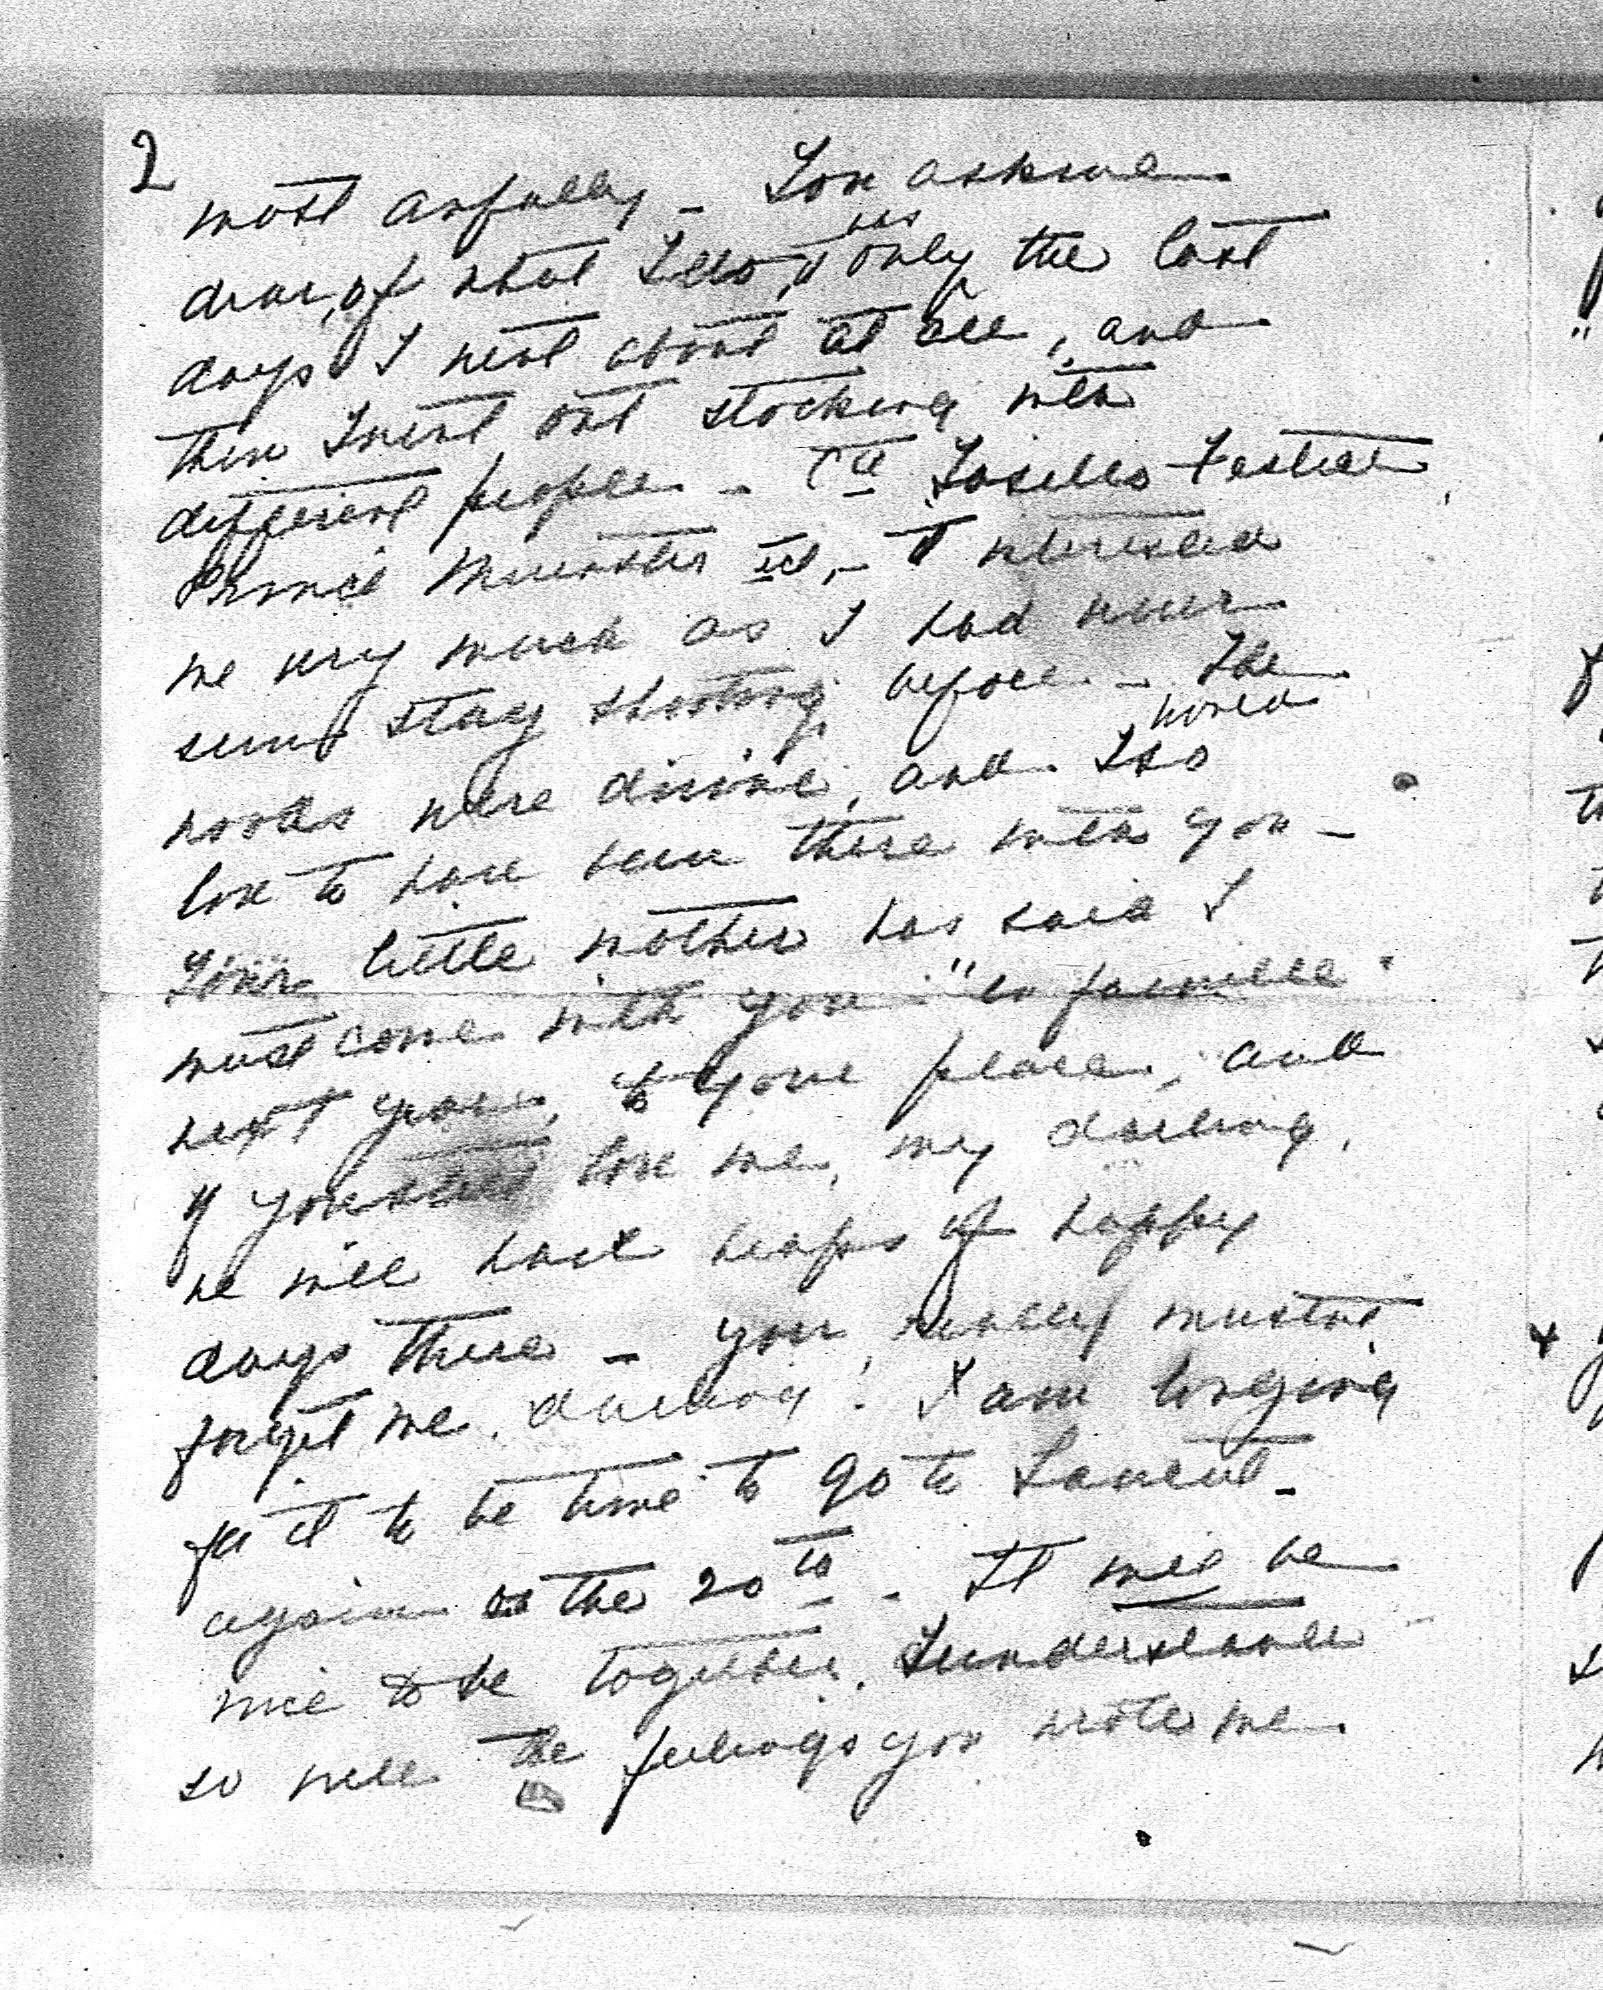 2
most awfully – You ask me
dear, of what I do, it was only the last
days I went about at all, and
then I went out stocking with
different people – Ct Festetics
Prince Muenster ect, – It interested
me very much as I had never
seen stag shooting before – The
woods were divine, and I so would
love to have been there with you –
Your little mother has said I
must come with you "en famille"
next year, to your place, and
if you still love me, my darling,
we will have heaps of happy
days there – you really mustnt
forget me darling! I am longing
for it to be time to go to Lancut –
again on the 20th – It will be
nice to be together. I understand
so well the feelings you wrote me